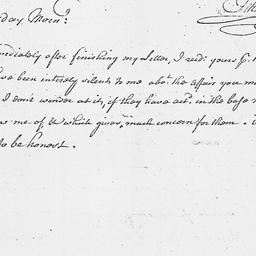 day Morn:
mediately after finishing my Letter, I recd: yours p.
ve been intirely silent to me abot. the affair you m
I don't wonder at it, if they have act. in the base
me of, & which gives much concern for them.
to be honest.